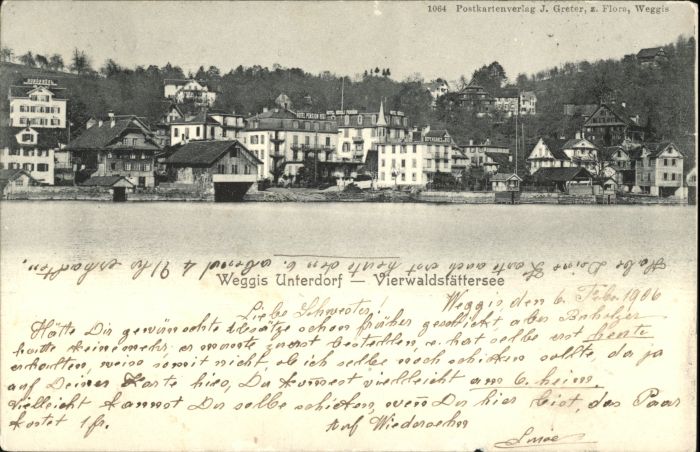 1064 Postkartenverlag J. Greter, z. Flora, Weggis
Weggis Unterdorf — Vierwaldstättersee
Habe Deine Karte auch erst heute den 6. abend 4 Uhr erhalten.
Weggis den 6. Febr. 1906
Liebe Schwester!
Hätte Dir gewünschte schon früher geschickt aber Buholzer
hatte keine mehr, er musste zuerst bestellen, u. hat selbe erst heute
erhalten, weiss somit nicht, ob ich selbe noch schicken sollte, da ja
auf Deiner Karte hies, Du kommest vielleicht am 6. heim.
Vielleicht kannst Du selbe schicken, wen Du hier bist, das Paar
kostet 1 fr. Auf Wiedersehn